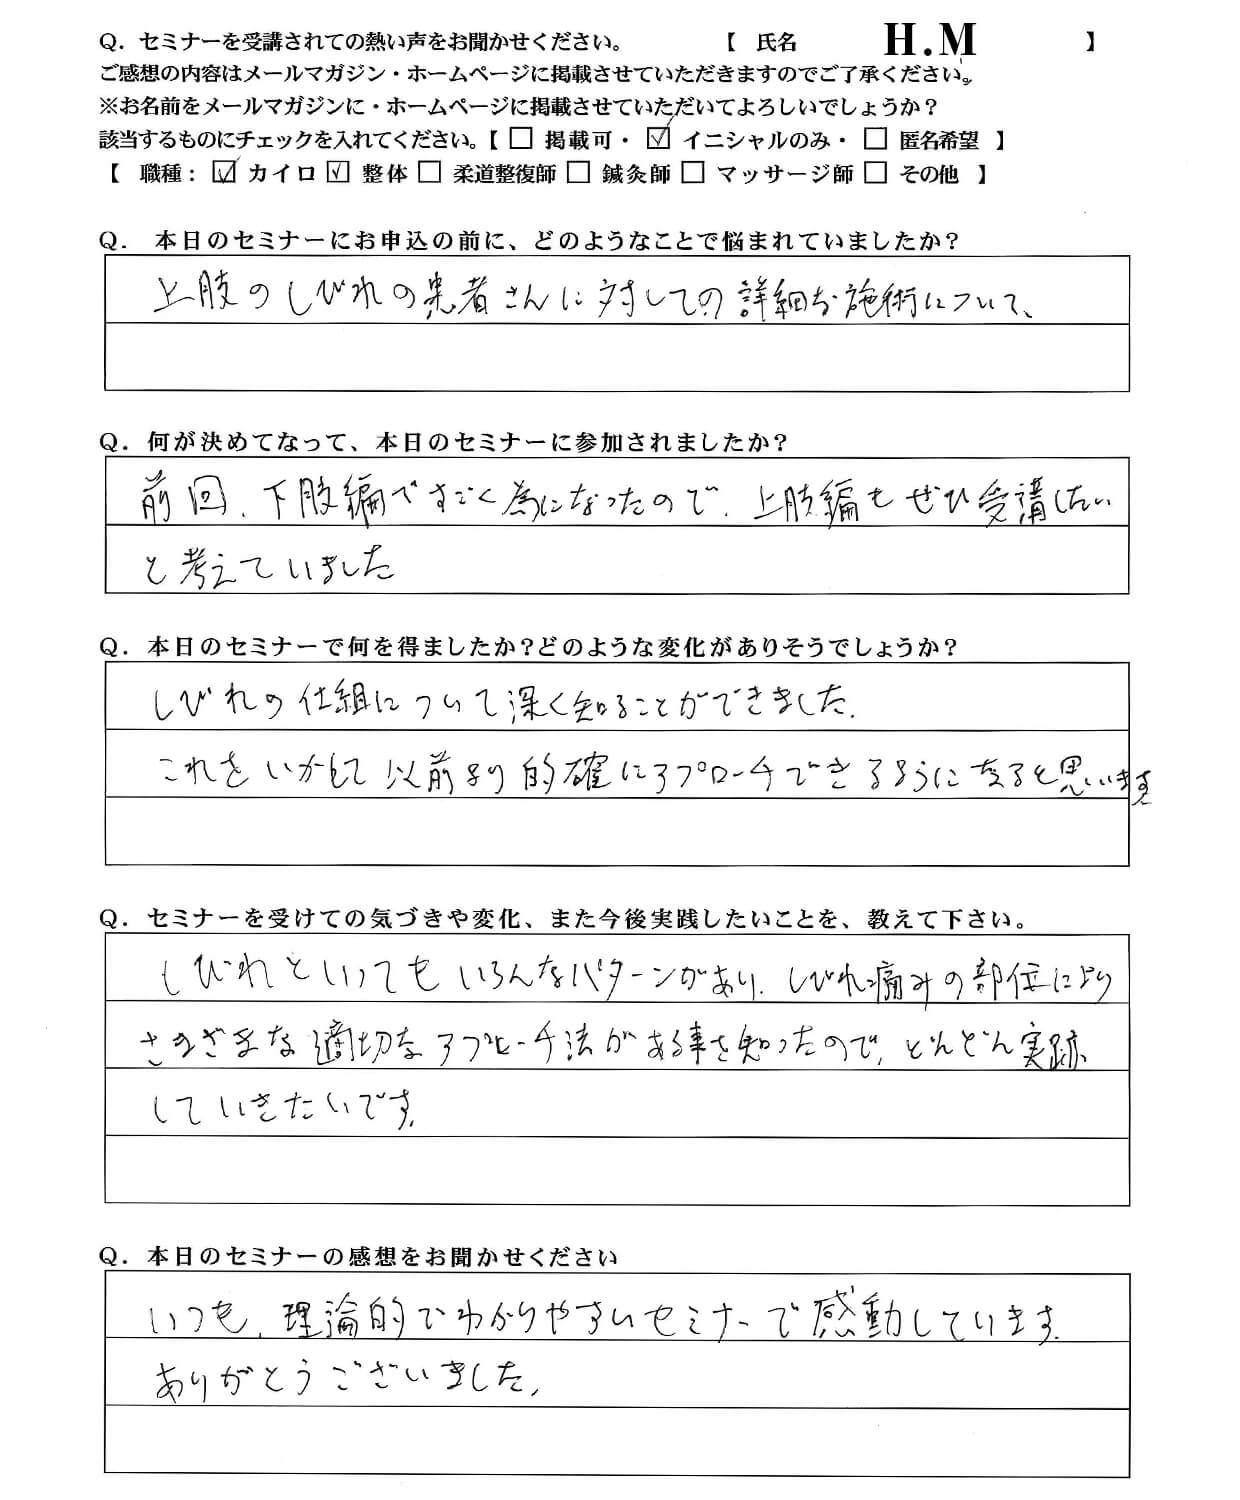 Q. セミナーを受講されての熱い声をお聞かせください。 【 氏名 H.M 】
ご感想の内容はメールマガジン・ホームページに掲載させていただきますのでご了承ください。
※お名前をメールマガジンに・ホームページに掲載させていただいてよろしいでしょうか？
該当するものにチェックを入れてください。【 □ 掲載可・ ☑ イニシャルのみ・ □ 匿名希望 】
【 職種： ☑ カイロ ☑ 整体 □ 柔道整復師 □ 鍼灸師 □ マッサージ師 □ その他 】
Q. 本日のセミナーにお申込の前に、どのようなことで悩まれていましたか？
上肢のしびれの患者さんに対しての詳細な施術について、
Q. 何が決めてなって、本日のセミナーに参加されましたか？
前回、下肢編ですごく為になったので、上肢編もぜひ受講したい
と考えていました
Q. 本日のセミナーで何を得ましたか？どのような変化がありそうでしょうか？
しびれの仕組について深く知ることができました.
これをいかして以前より的確にアプローチできるようになると思います
Q. セミナーを受けての気づきや変化、また今後実践したいことを、教えて下さい。
しびれといってもいろんなパターンがあり、しびれ痛みの部位により
さまざまな適切なアプローチ法がある事を知ったので、どんどん実践
していきたいです.
Q. 本日のセミナーの感想をお聞かせください
いつも、理論的でわかりやすいセミナーで感動しています.
ありがとうございました、